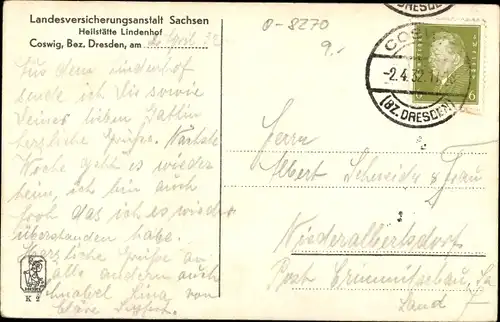 Landesversicherungsanstalt Sachsen
Heilstätte Lindenhof
Coswig, Bez. Dresden, am 2. April 32
Aus dem Lindenhof
sende ich Dir sowie
Deiner lieben Gattin
herzliche Grüße. Nächste
Woche geht es wieder
heim, ich bin auch
froh das ich es wieder
überstanden habe.
Herzliche Grüße an
alle andern auch
von
K 2
0-8270
9.-
COSWIG
-2.4.32.
(BZ. DRESDEN)
DRESDEN)
6
Herrn
Albert Schneider & Frau
Niederalbertsdorf
Post Crimmitschau, Sa
Land